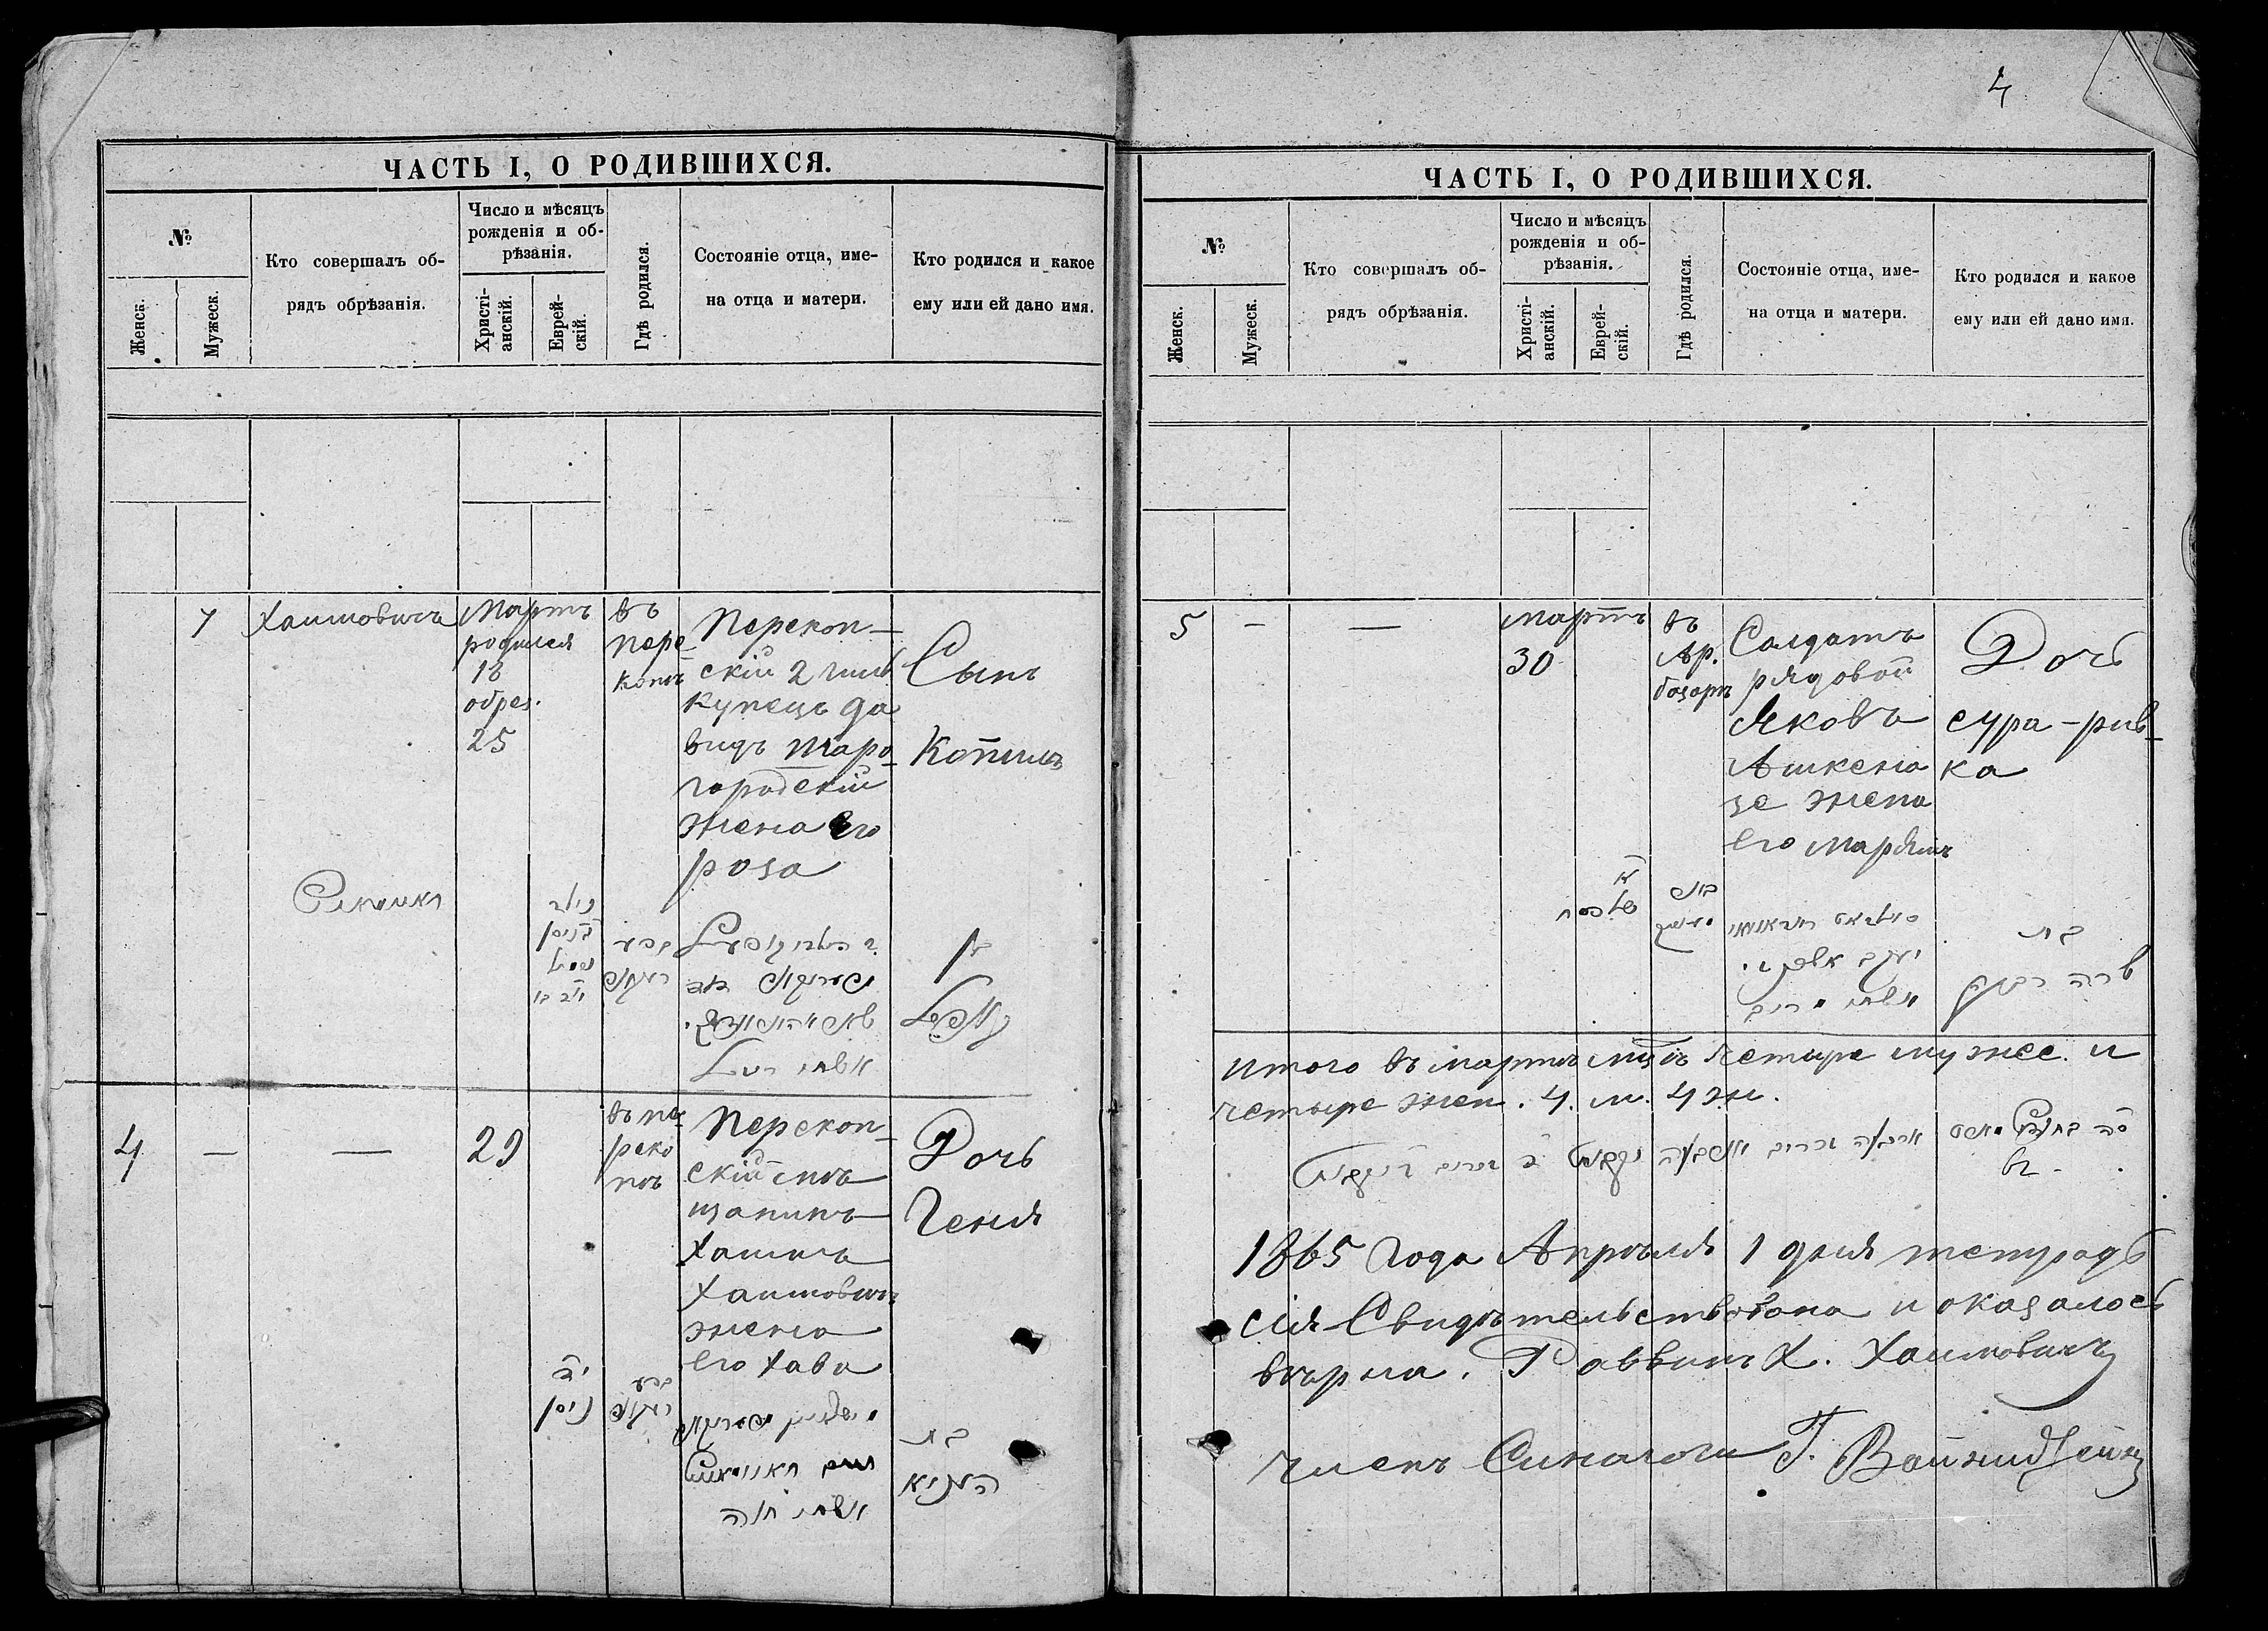 ЧАСТЬ I, О РОДИВШИХСЯ.
№
Женск.
Мужеск.
Кто совершалъ об-
рядъ обрѣзанія.
Число и мѣсяцъ
рожденія и об-
рѣзанія.
Христі-
анскій.
Еврей-
скій.
Гдѣ родился.
Состояніе отца, име-
на отца и матери.
Кто родился и какое
ему или ей дано имя.
7
Хаимовичъ
Мартъ
родился
18
обрез.
25
въ
пере
копѣ
Перекоп-
скій 2 гил
купецъ Да
видъ
городскій
жена его
роза
Сынъ
Копель
נולד
בניסן
אשתו רייזל
בן
קאפיל
4
—
—
29
въ пе
реко
пѣ
Перекоп-
скій мѣ
щанинъ
Хаимъ
Хаимович
жена
его Хава
Дочь
Геня
ניסן
חיים חאימאוויטש
אשתו חוה
בת
העניא
4
ЧАСТЬ I, О РОДИВШИХСЯ.
№
Женск.
Мужеск.
Кто совершалъ об-
рядъ обрѣзанія.
Число и мѣсяцъ
рожденія и об-
рѣзанія.
Христі-
анскій.
Еврей-
скій.
Гдѣ родился.
Состояніе отца, име-
на отца и матери.
Кто родился и какое
ему или ей дано имя.
5
—
—
Мартъ
30
въ
Ар.
базарѣ
Солдатъ
рядовой
Яковъ
Ашкена
зе жена
его Марьямъ
Дочь
сура-рив-
ка
של פסח
יעקב אשכנזי
אשתו מרים
בת
שרה רבקה
Итого въ мартѣ мцѣ четыре мужес. и
четыре жен. 4. м. 4 ж.
ארבעה זכרים וארבעה נקבות
1865 Года Апрѣля 1 дня тетрадь
сія Свидѣтельствована и оказалось
вѣрна. Раввинъ Х. Хаимовичъ
членъ Синагоги Г.